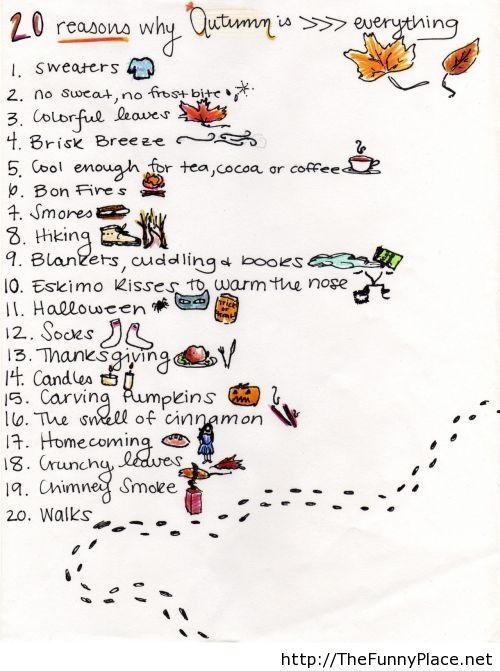 20 reasons why Autumn is >>> everything
1. Sweaters
2. no sweat, no frost bite
3. Colorful leaves
4. Brisk Breeze
5. Cool enough for tea, cocoa or coffee
6. Bon Fires
7. Smores
8. Hiking
9. Blankets, cuddling & books
10. Eskimo Kisses to warm the nose
11. Halloween
TRICK or Treat
12. Socks
13. Thanksgiving
14. Candles
15. Carving Pumpkins
16. The smell of cinnamon
17. Homecoming
18. Crunchy leaves
19. Chimney Smoke
20. Walks
http://TheFunnyPlace.net